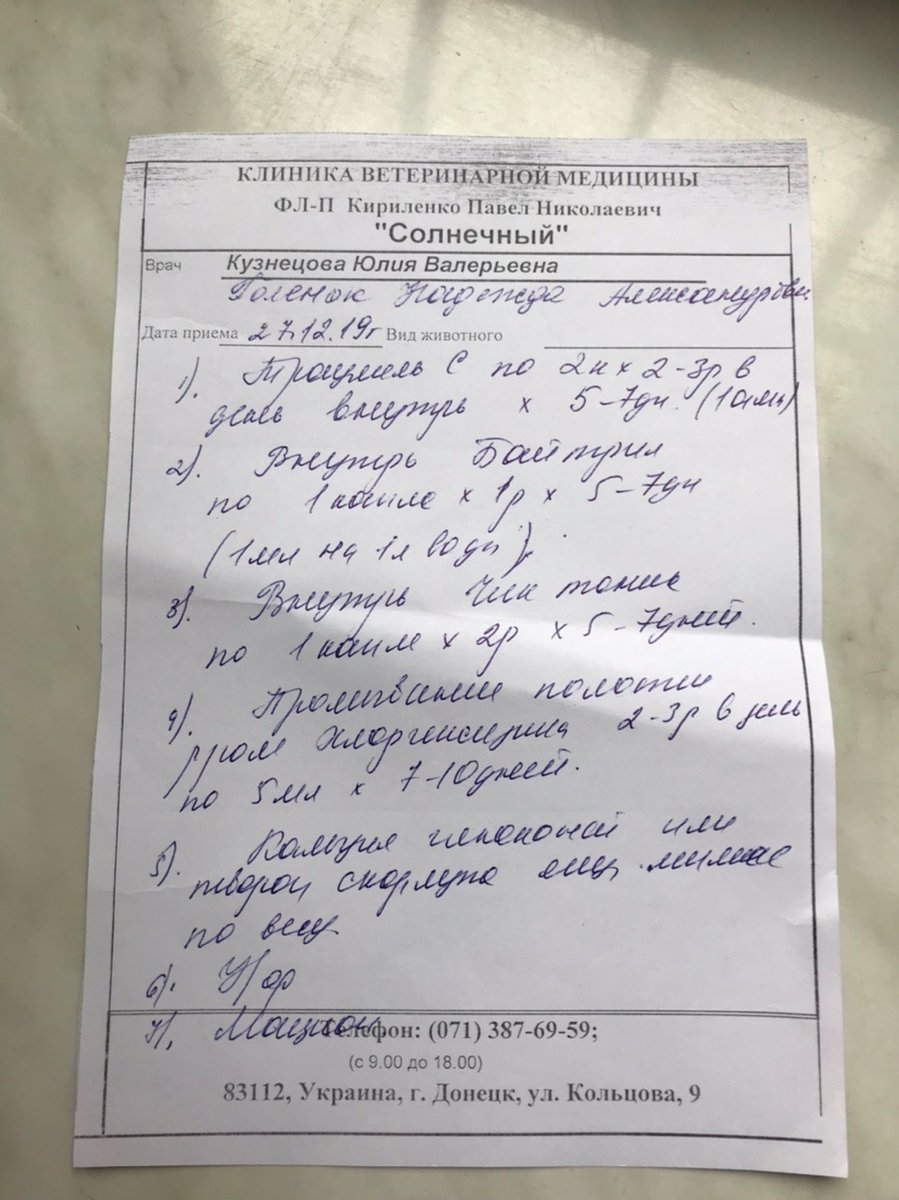 КЛИНИКА ВЕТЕРИНАРНОЙ МЕДИЦИНЫ
ФЛ-П Кириленко Павел Николаевич
"Солнечный"
Врач Кузнецова Юлия Валерьевна
Надежда
Дата приема 27.12.19г Вид животного
1). С по 2к х 2-3р в
день внутрь х 5-7дн. (1амп)
2). Внутрь Байтрил
по 1 капле х 1р х 5-7дн
(1мл на 1л воды),
3). Внутрь Чиктоник
по 1 капле х 2р х 5-7дней.
4). Промывание полости
р-ром 2-3р в день
по 5мл х 7-10дней.
5). Кальция или
творог скорлупа яиц
по весу
6). Уф
7). Моцион.
Телефон: (071) 387-69-59;
(с 9.00 до 18.00)
83112, Украина, г. Донецк, ул. Кольцова, 9